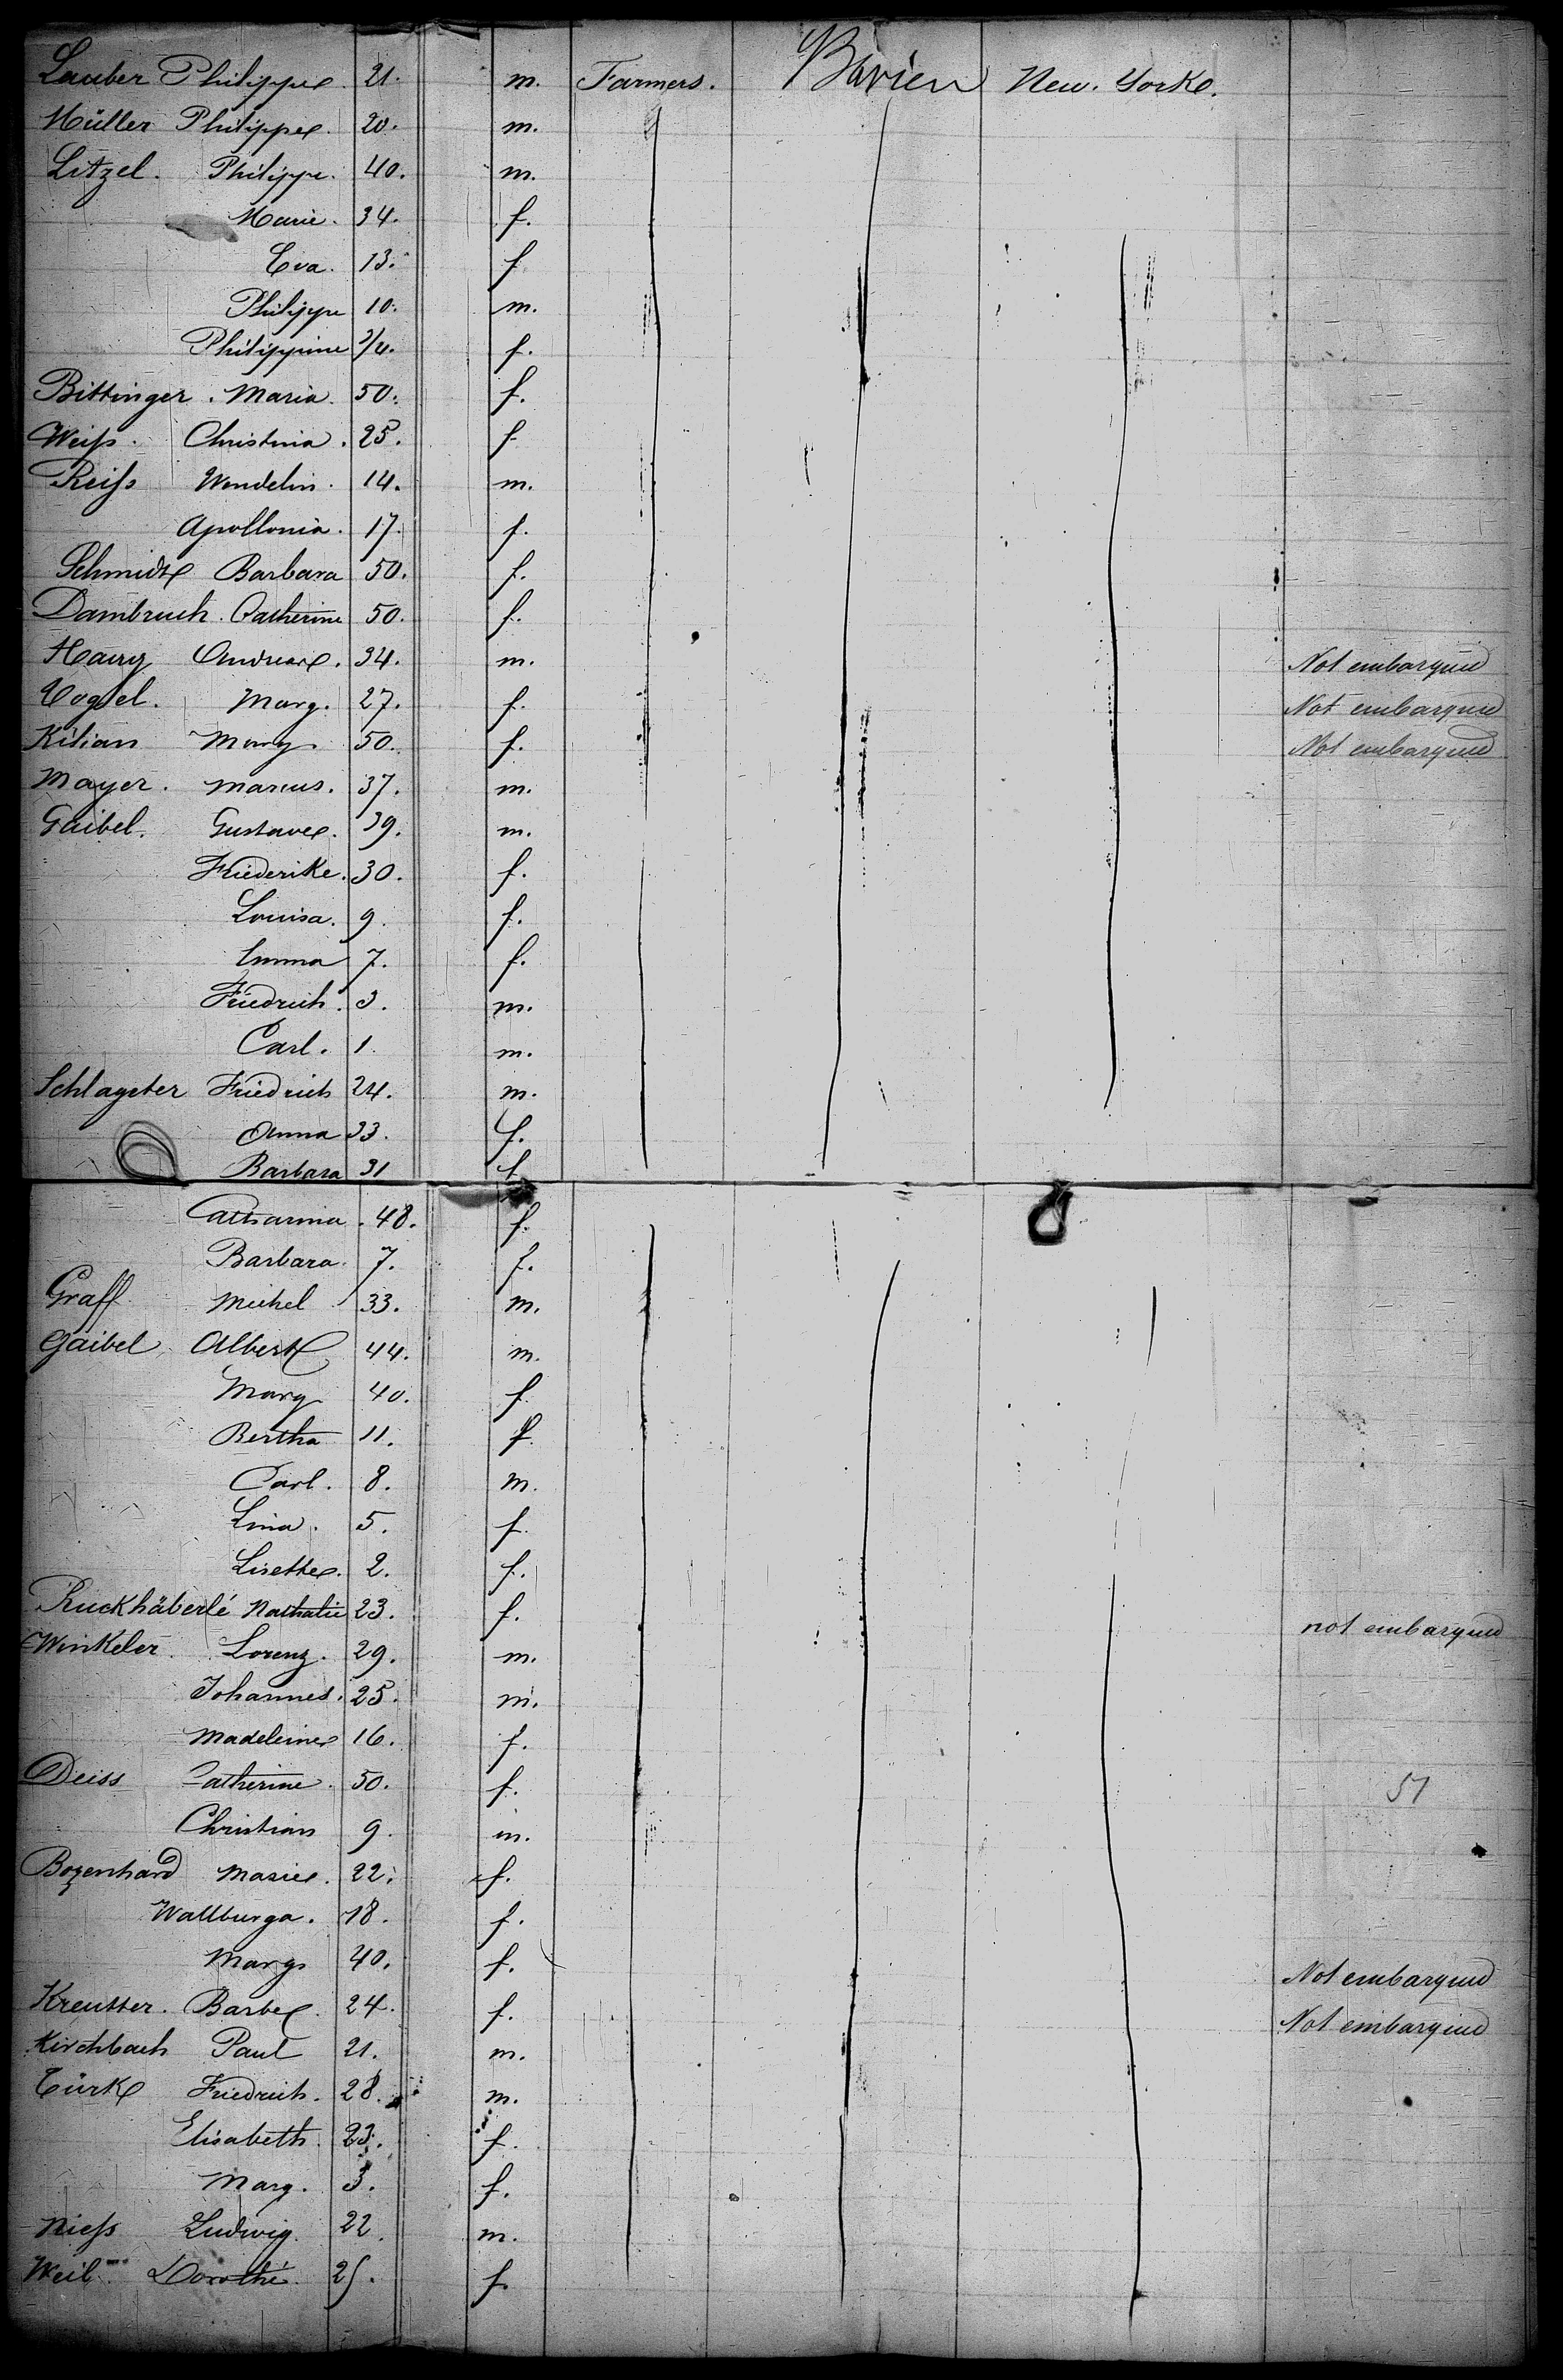 Lauber Philippe. 21. m. Farmers. Bavien New. Yorke.
Müller Philippe. 20. m.
Litzel. Philippe. 40. m.
Marie. 34. f.
Eva. 13. f.
Philippe 10. m.
Philippine 3/4. f.
Bittinger. Maria. 50. f.
Weiss. Christina. 25. f.
Reiss Wendelin. 14. m.
Apollonia. 17. f.
Schmidt Barbara 50. f.
Dambruch. Catherine 50. f.
Andreas. 34. m. Not embarqued
Vogel. Marg. 27. f. Not embarqued
Kilian Marg. 50. f. Not embarqued
Mayer. Marcus. 37. m.
Gaibel. Gustave. 39. m.
Friederike. 30. f.
Louisa. 9. f.
Emma 7. f.
Friedrich. 3. m.
Carl. 1. m.
Schlagster Friedrich 24. m.
Anna 33. f.
Barbara 31 f
Catharina. 48. f.
Barbara. 7. f.
Graff Michel 33. m.
Gaibel Albert 44. m.
Marg 40. f.
Bertha 11. f.
Carl. 8. m.
Lina. 5. f.
Lisette. 2. f.
Ruckhäberlé Nathalie 23. f. not embarqued
Winkeler. Lorenz. 29. m.
Johannes. 25. m.
Madeleine 16. f.
Deiss Catherine. 50. f. 51
Christian 9. m.
Bozenhard Marie. 22. f.
Wallburga. 18. f.
Marg. 40. f. Not embarqued
Kreutter. Barbe. 24. f. Not embarqued
Kirchbach Paul 21. m.
Türk Friedrich. 28. m.
Elisabeth. 23. f.
Marg. 3. f.
Niess Ludwig. 22. m.
Weil Dorothé. 25. f.